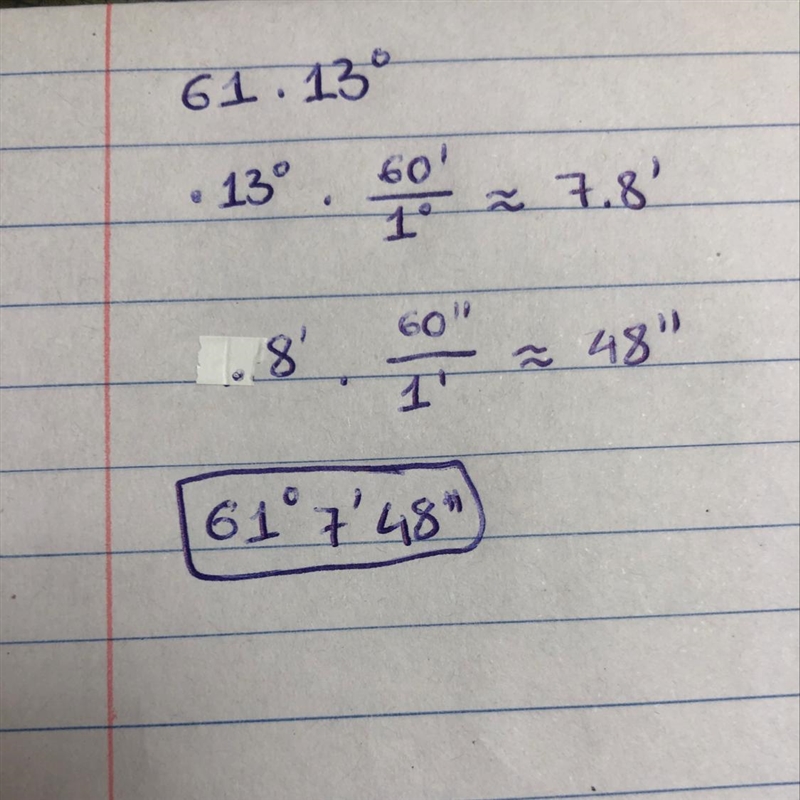 61.13°
.13° · 60'/1° ≈ 7.8'
.8' · 60"/1' ≈ 48"
61° 7' 48"